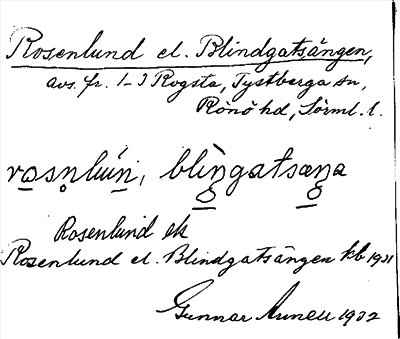 Rosenlund el. Blindgatsängen,
avs. fr. 1-3 Rogsta, Tystberga sn,
Rönö hd, Sörml. l.
rosṇluń, blìŋgatsæŋa
Rosenlund ek
Rosenlund el. Blindgatsängen kb 1931
Gunnar 1932